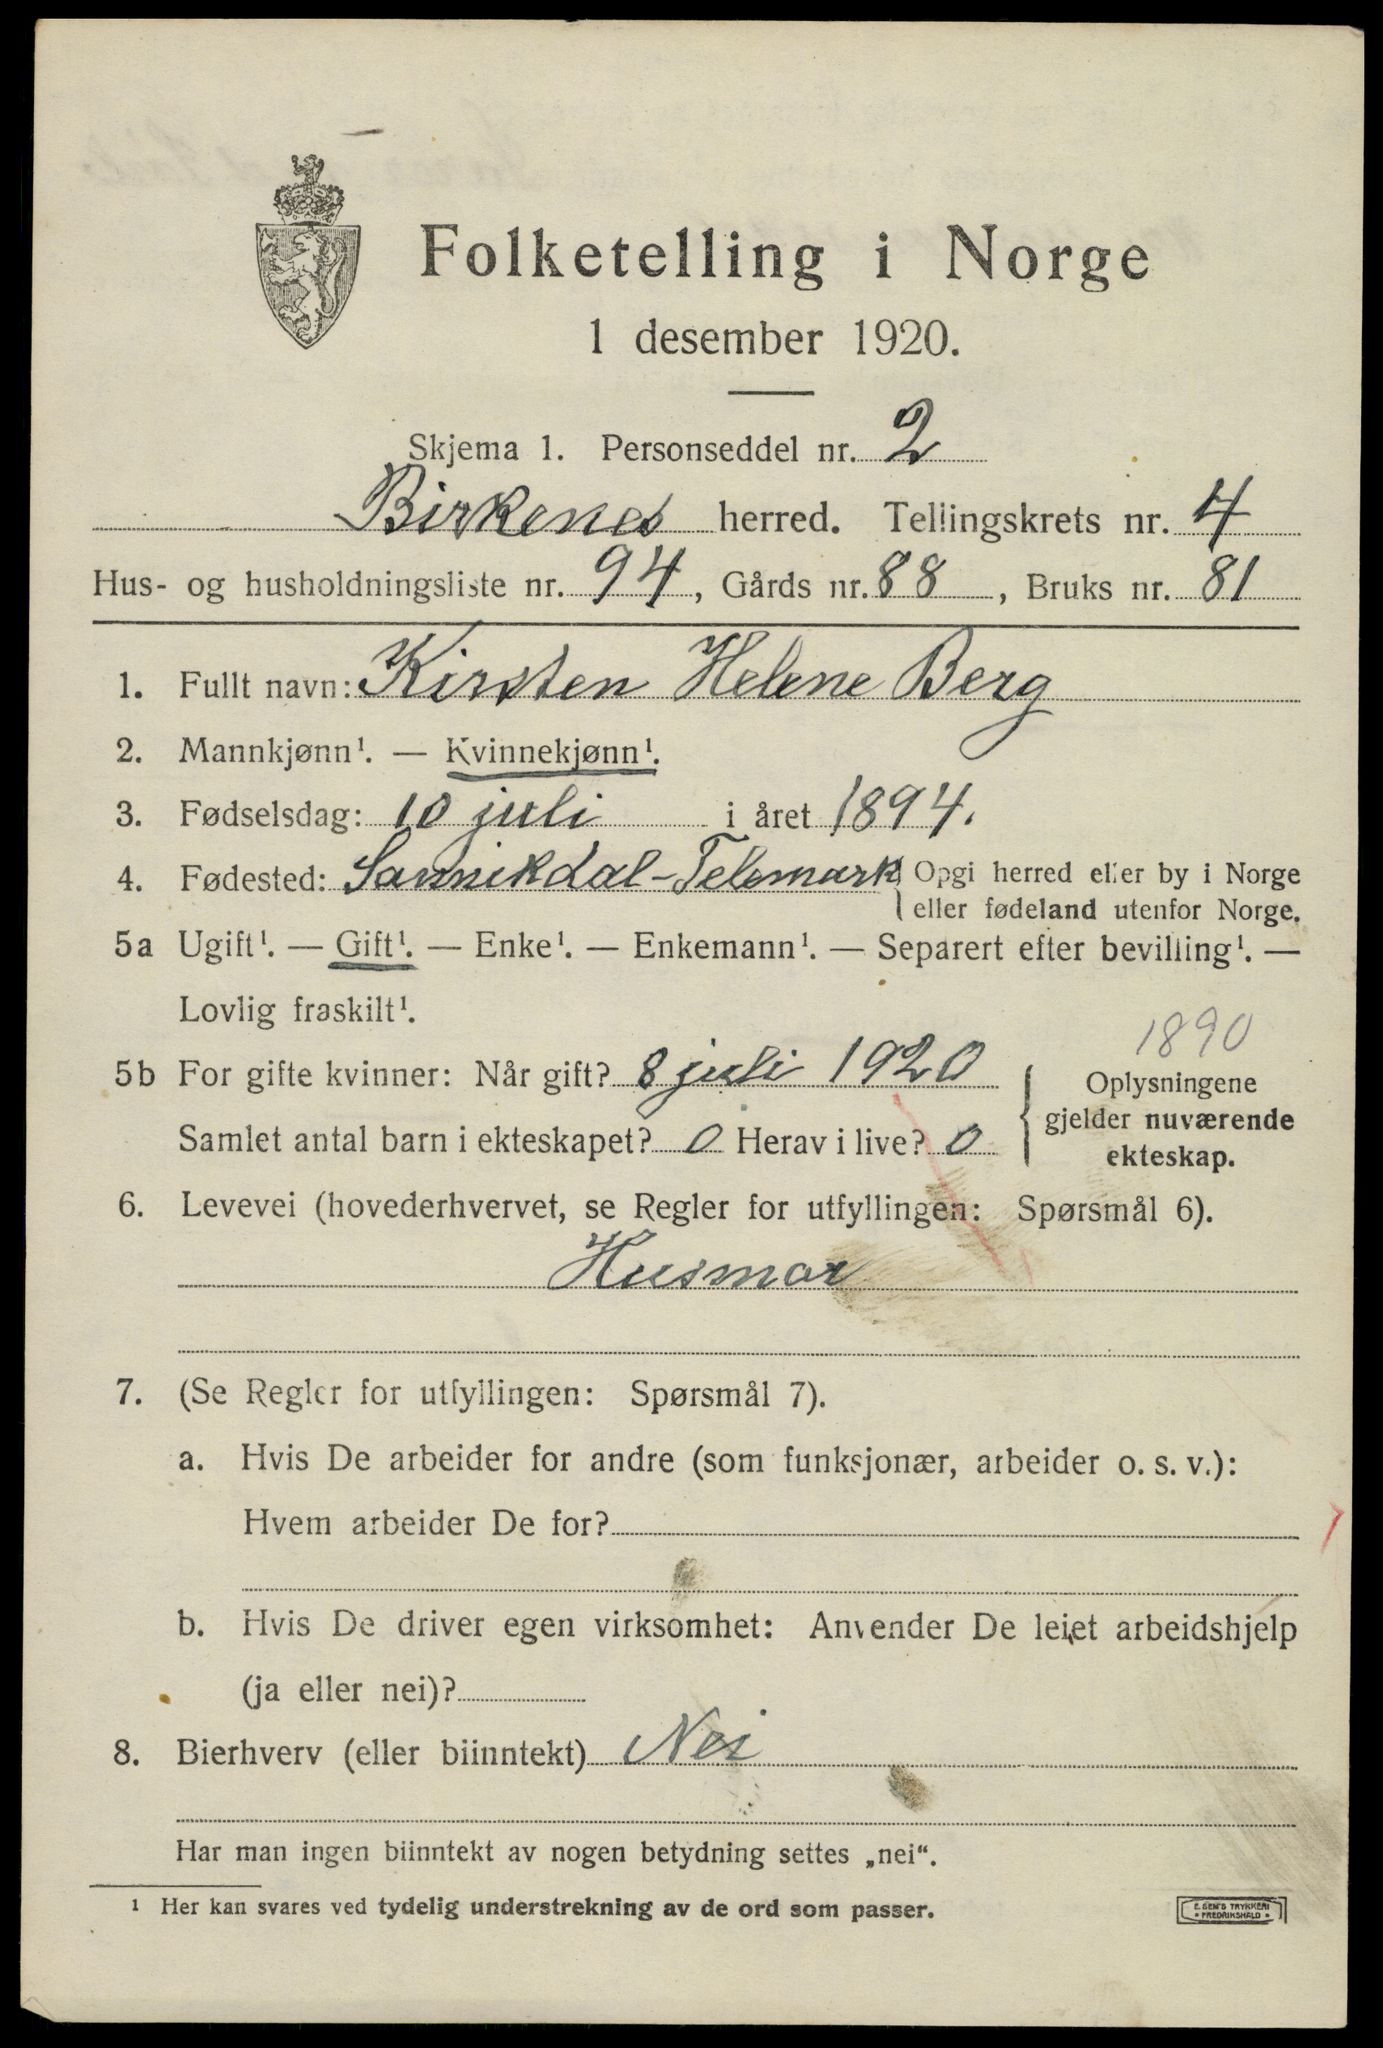 Folketelling i Norge
1 desember 1920.
Skjema 1. Personseddel nr. 2
Birkenes herred. Tellingskrets nr. 4
Hus- og husholdningsliste nr. 94, Gårds nr. 88, Bruks nr. 81
1. Fullt navn: Kirsten Helene Berg
2. Mannkjønn¹. — Kvinnekjønn¹.
3. Fødselsdag: 10 juli i året 1894.
4. Fødested: Sannikdal-Telemark { Opgi herred eller by i Norge
eller fødeland utenfor Norge.
5a Ugift¹. — Gift¹. — Enke¹. — Enkemann¹. — Separert efter bevilling¹. —
Lovlig fraskilt¹.
1890
5b For gifte kvinner: Når gift? 8 juli 1920
Samlet antal barn i ekteskapet? 0 Herav i live? 0
{ Oplysningene
gjelder nuværende
ekteskap.
6. Levevei (hovederhvervet, se Regler for utfyllingen: Spørsmål 6).
Husmor
7. (Se Regler for utfyllingen: Spørsmål 7).
a. Hvis De arbeider for andre (som funksjonær, arbeider o. s. v.):
Hvem arbeider De for?
b. Hvis De driver egen virksomhet: Anvender De leiet arbeidshjelp
(ja eller nei)?
8. Bierhverv (eller biinntekt) Nei
Har man ingen biinntekt av nogen betydning settes „nei“.
¹ Her kan svares ved tydelig understrekning av de ord som passer.
E. SEM'S TRYKKERI
• FREDRIKSHALD •